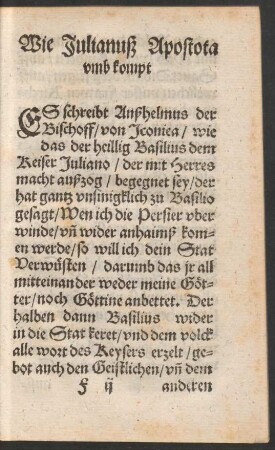 Wie Julianuß Apostota
vmb kompt
ES schreibt Anßhelmus der
Bischoff / von Jconiea / wie
das der heilig Basilius dem
Keiser Juliano / der mit Herres
macht außzog / begegnet sey / der
hat gantz vnsinigklich zu Basilio
gesagt / Wen ich die Persier vber
winde / vñ wider anhaimß kom-
en werde / so will ich dein Stat
Verwüsten / darumb das jr all
mitteinander weder meine Göt-
ter / noch Göttine anbettet. Der
halben dann Basilius wider
in die Stat keret / vnd dem volck
alle wort des Keysers erzelt / ge-
bot auch den Geistlichen / vñ dem
F ij anderen